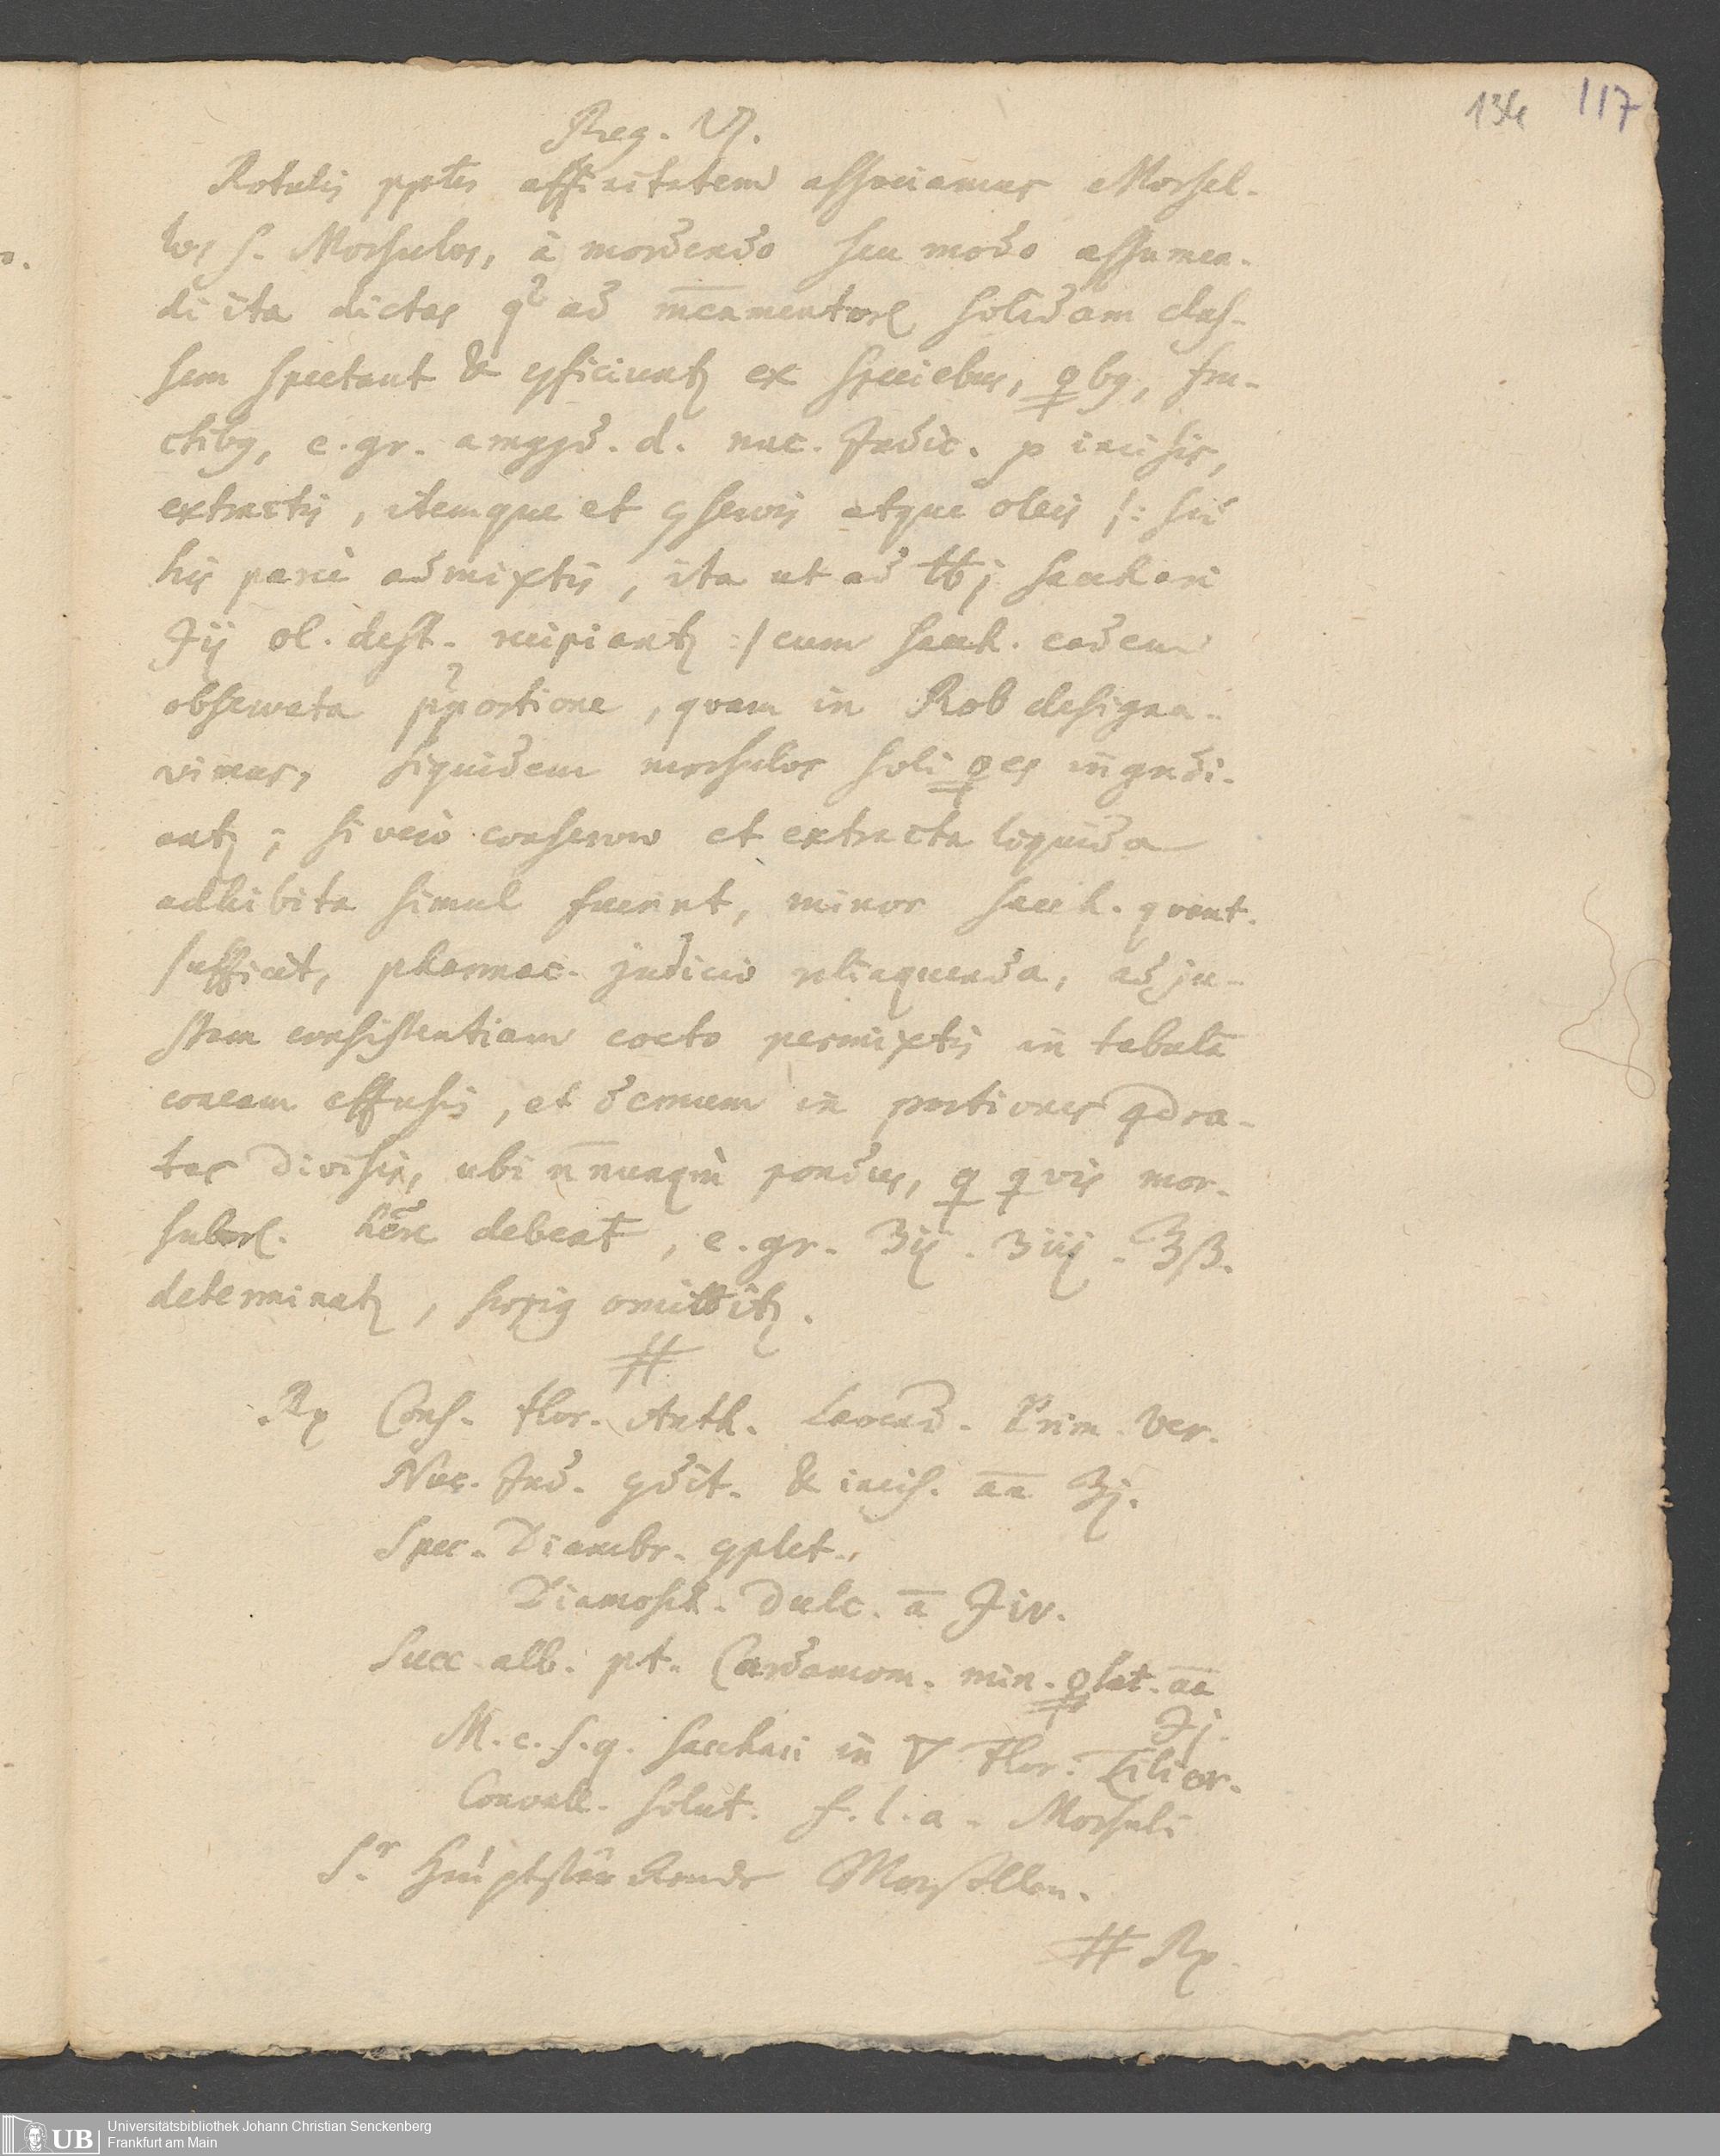 134 117
Reg. VI.
Rotulis pptis affinitatem associamus Morsel-
los s. Morsulos, à mordendo seu modo assumen-
di ita dictos q ad mcamentorū solidam clas-
sem spectant & cficiuntʒ ex speciebus, ♀bʒ, fru-
ctibʒ, e. gr. amygd. d. nuc. Indic. p incisis,
extractis, itemque et cservis atque oleis /: sed
his parcè admixtis, ita ut ad ℔j sacchari
Ʒij ol. dest. recipiantʒ :/ cum sacch. eadem
observata pportione, quam in Rob designa-
vimus, siquidem morsulos soli ♀es ingredi-
antʒ; si verò conservæ et extracta liquida
adhibita simul fuerint, minor sacch. quant.
sufficit, pharmac. judicio relinquenda, ad ju-
stam consistentiam cocto permixtis in tabulā
eneam effusis, et demum in portiones qdra-
tas divisis, ubi nnunqm pondus, q qvis mor-
sulorū. hēre debeat, e. gr. ʒij. ʒiij. ℥ß.
determinatʒ, sæpiʒ omittitʒ.
#
Rp Cons. flor. Anth. Lavend. Prim. Ver.
Nuc. Ind. cdit. & incis. aa ℥j.
Spec. Diambr. cplet.
Diamosch. Dulc. a Ʒiv.
Succ. alb. pt. Cardamom. min. ♀lat. aa
Ʒj.
M. c. s. q. sacchari in ▽ Flor. Lilior.
Convall. solut. f. l. a. Morsuli
S.r Hauptstärkende Morsellen.
# Rp.
UB Universitätsbibliothek Johann Christian Senckenberg
Frankfurt am Main